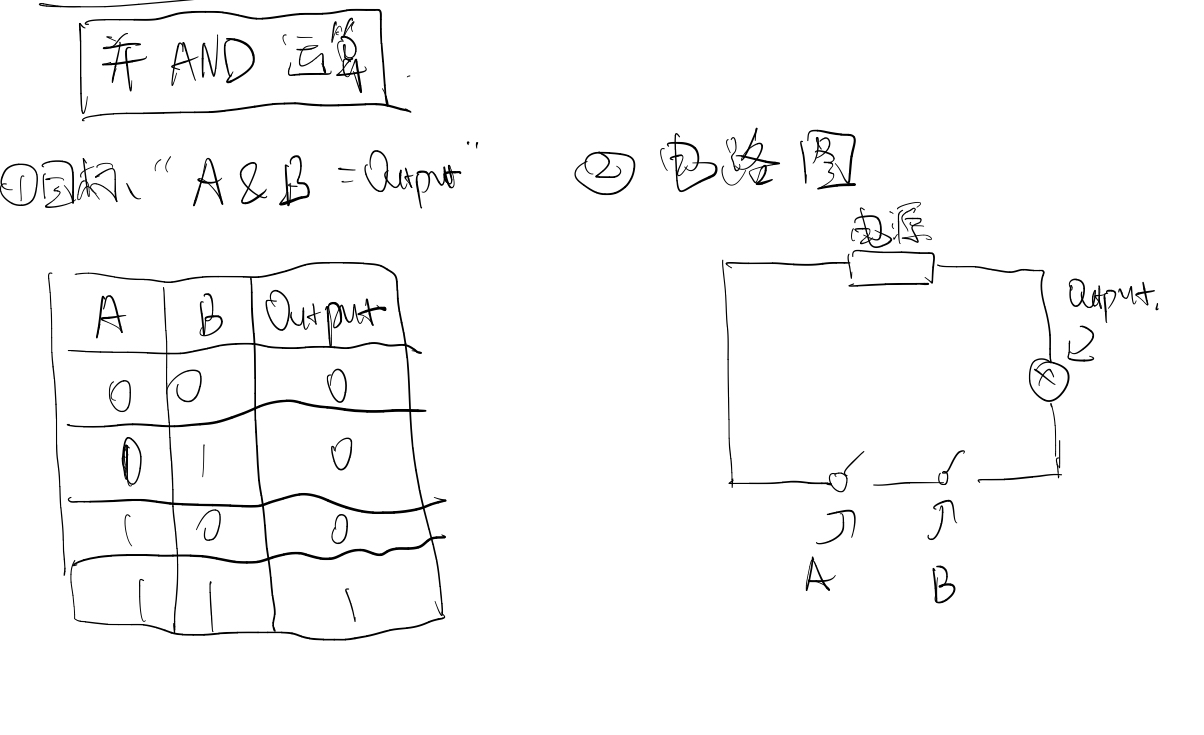 并 AND 运算
①目标、“A & B = Output”
A B Output
0 0 0
0 1 0
1 0 0
1 1 1
② 电路图
电源
Output.
A
B